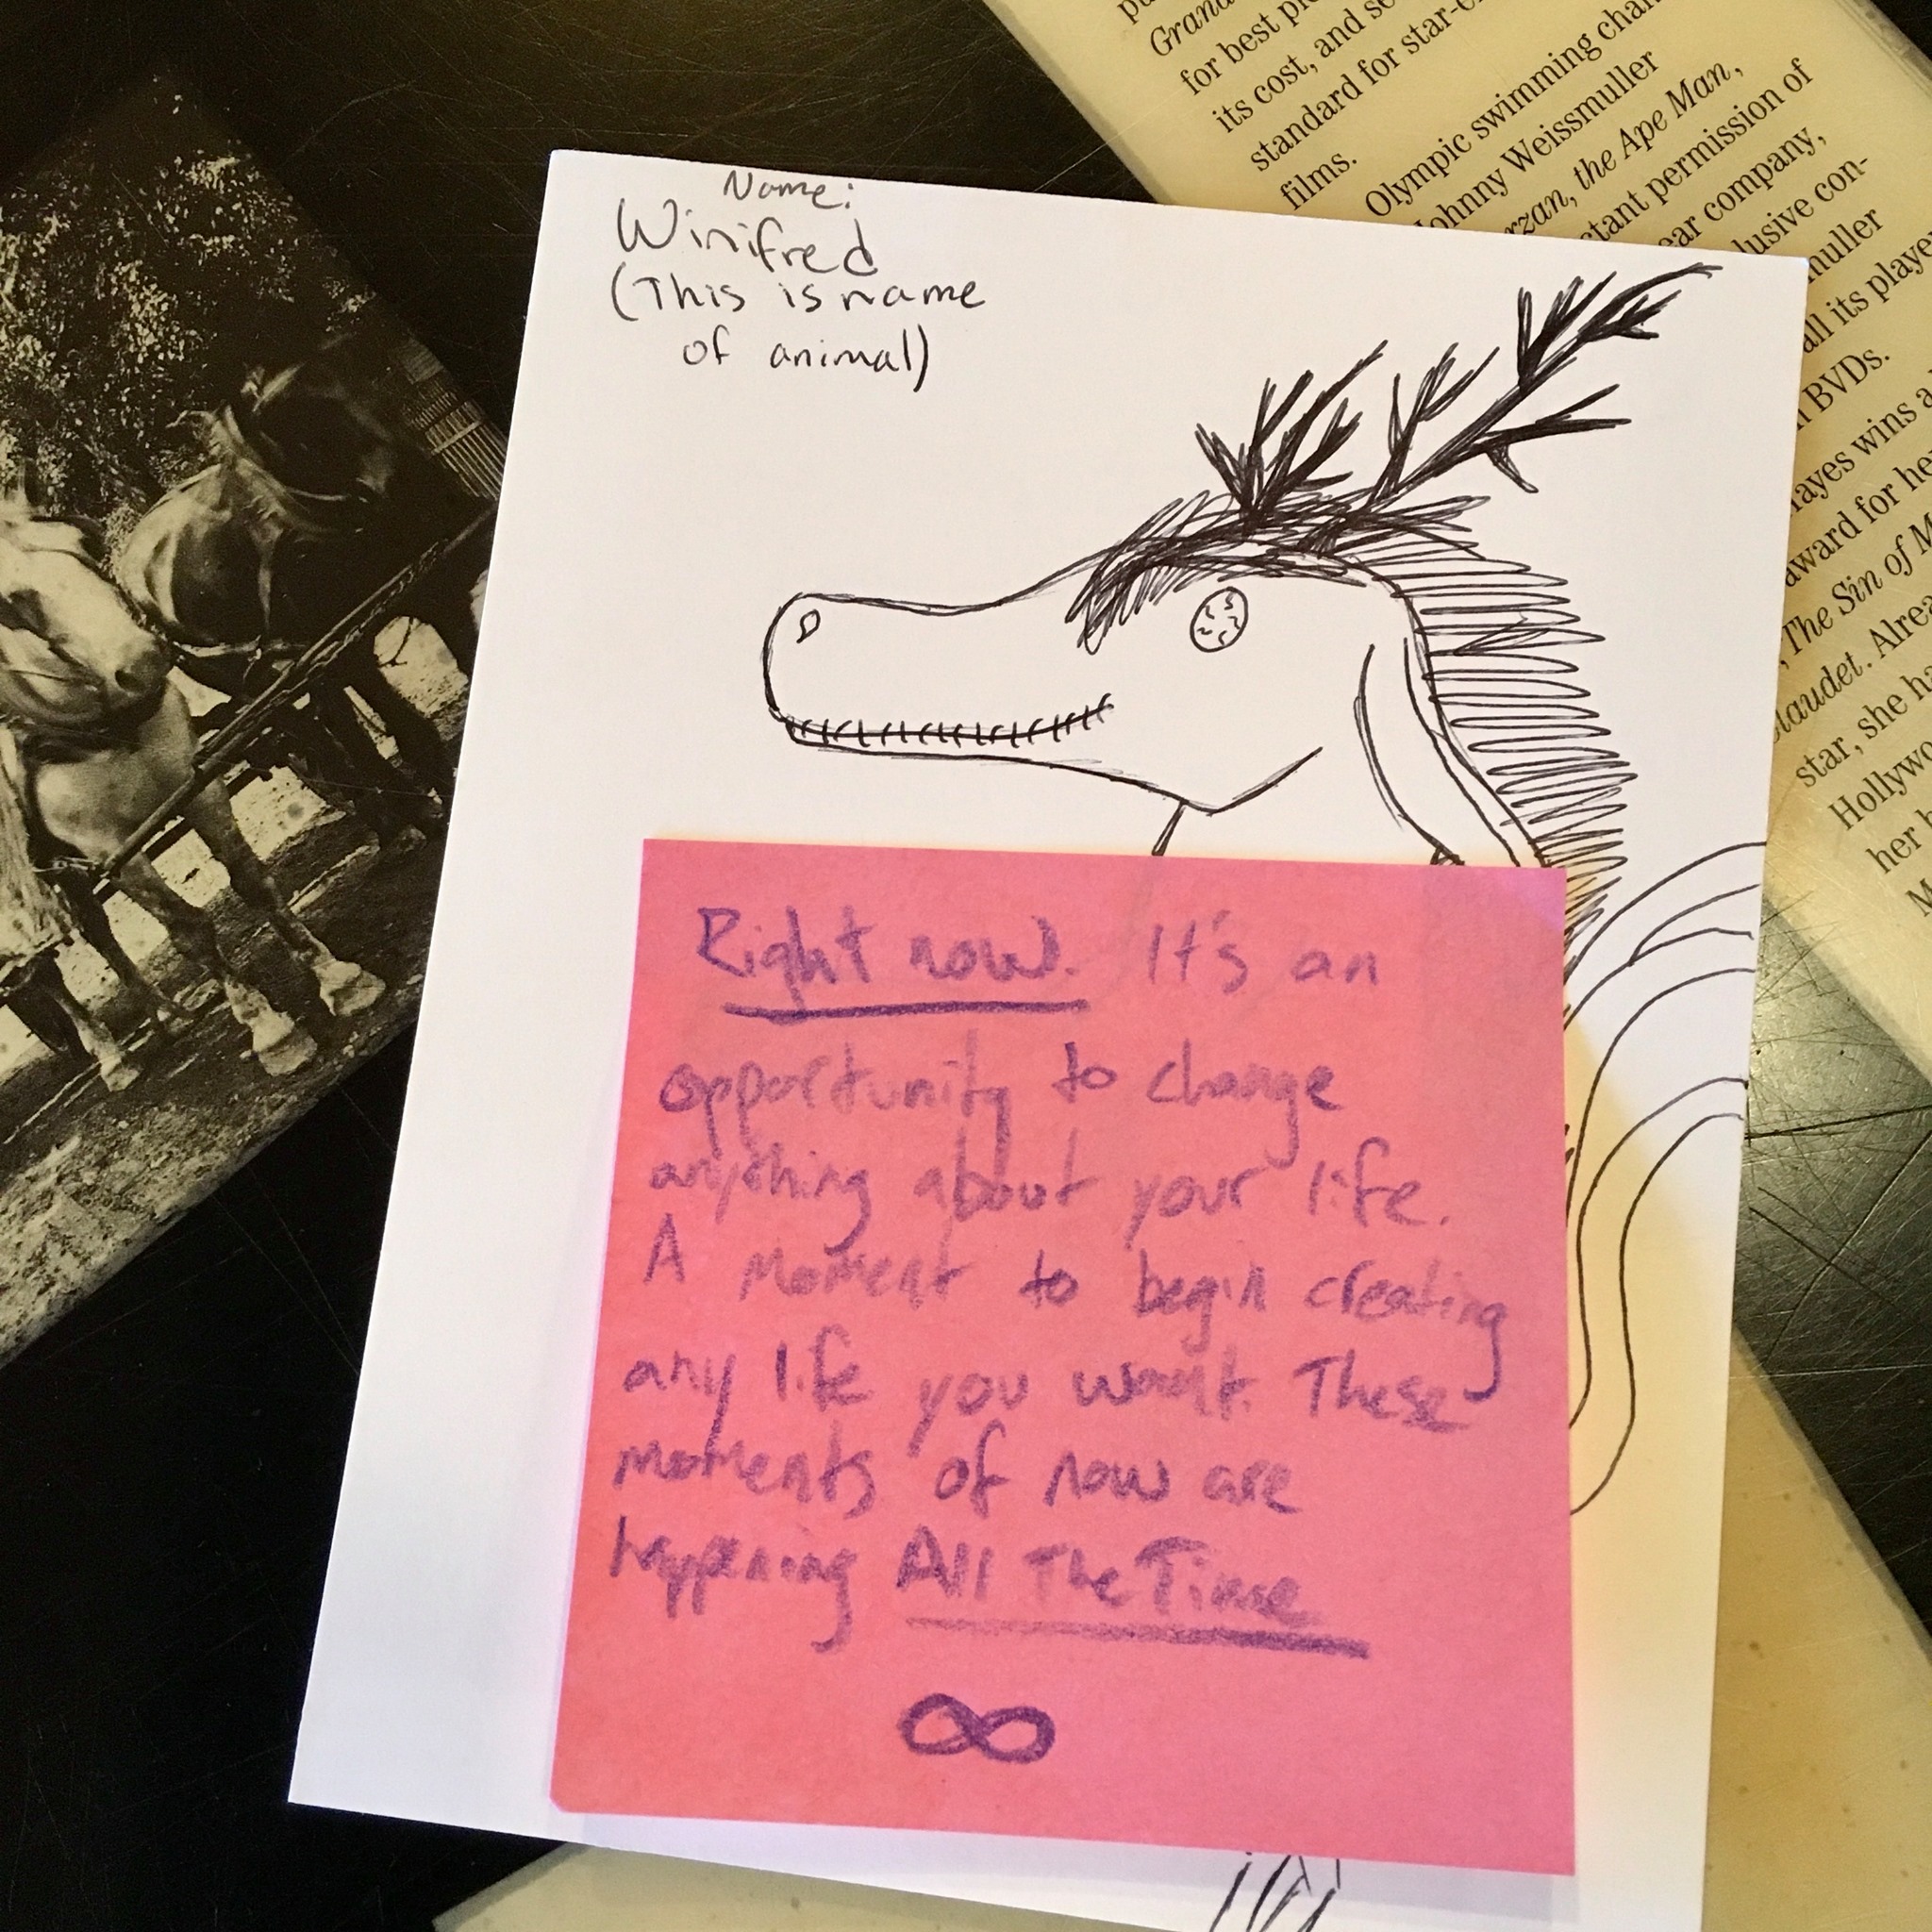 Name:
Winifred
(This is name
of animal)
Right now. It's an
opportunity to change
anything about your life.
A moment to begin creating
any life you want. These
moments of now are
happening All The Time
∞
Grand
for best
its cost, and
standard for
films.
Olympic swimming
Johnny Weissmuller
the Ape Man,
permission of
company,
all its
BVDs.
wins
award for her
The Sin of
star, she
her